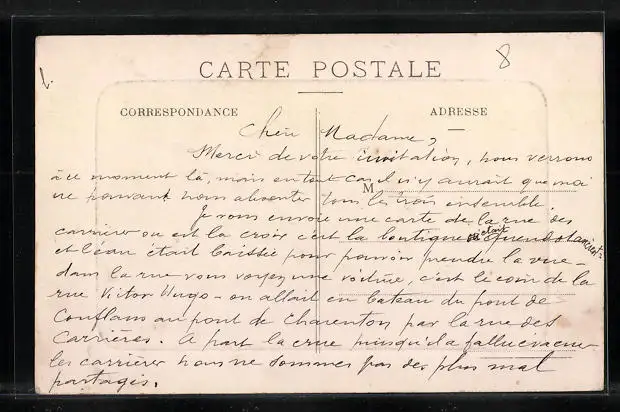 8
CARTE POSTALE
CORRESPONDANCE
ADRESSE
Chère Madame,
Merci de votre invitation, nous verrons
à ce moment là, mais en tout cas il n'y aurait que moi
M
ne pouvant nous absenter tous les trois ensemble
Je vous envoie une carte de la rue des
carrières ou est la croix c'est la boutique
et l'eau était baissée pour pouvoir prendre la vue
dans la rue vous voyez une voiture, c'est le coin de la
rue Victor Hugo - on allait en bateau du pont de
Conflans au pont de Charenton par la rue des
Carrières. A part la crue puisqu'il a fallu évacuer
les carrières nous ne sommes pas des plus mal
partagés.